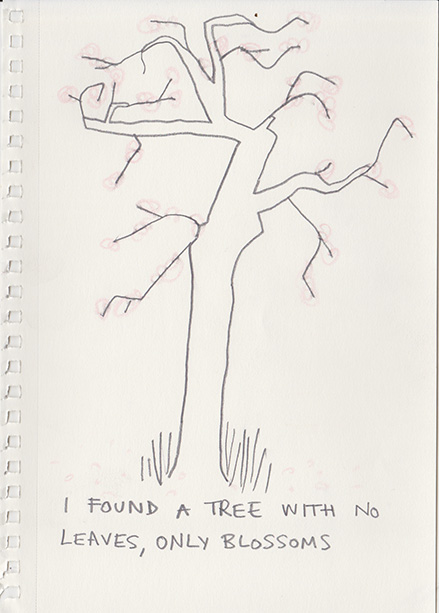 I FOUND A TREE WITH NO
LEAVES, ONLY BLOSSOMS